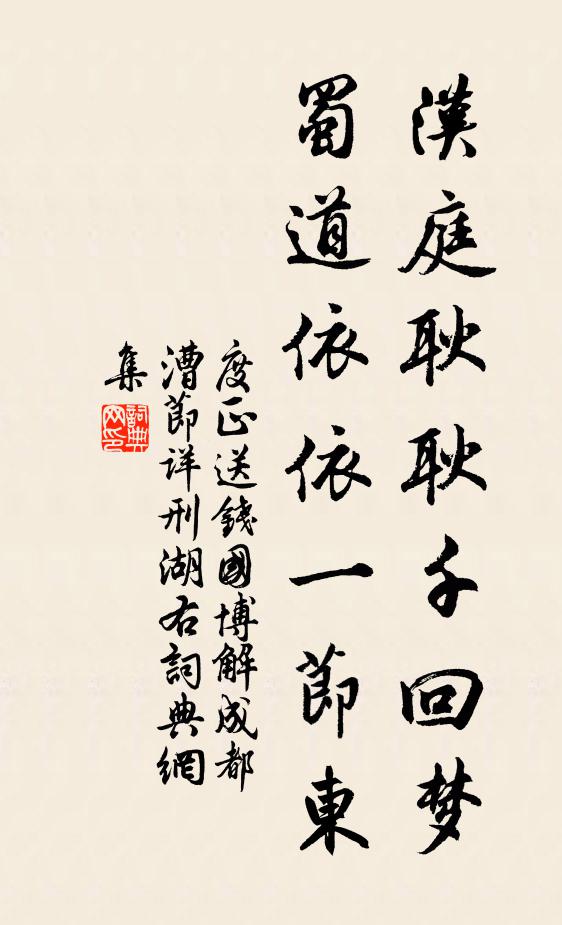 漢庭耿耿千回梦
蜀道依依一節東
度正送錢國博解成都
漕節详刑湖右詞典網
集
詞典网印